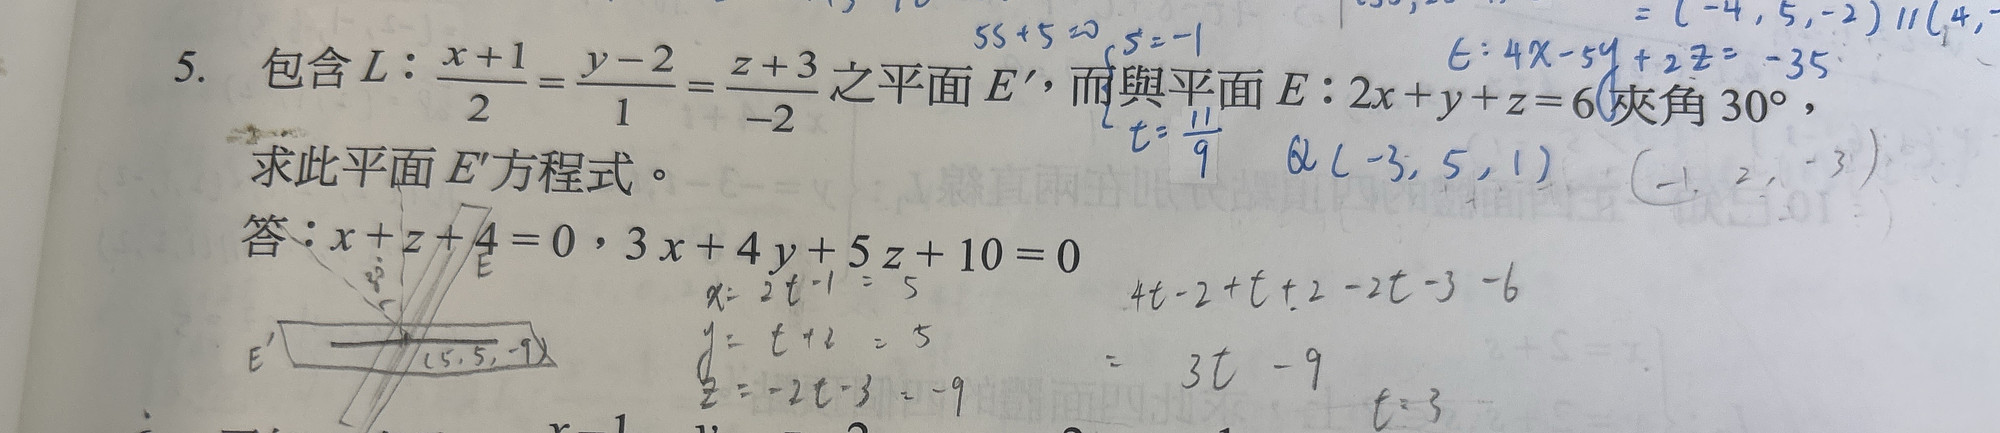 = (-4, 5, -2) // (4,
5s+5=0 { s=-1
t=11/9
E: 4x-5y+2z=-35
5. 包含 L：(x+1)/2 = (y-2)/1 = (z+3)/-2 之平面 E′，而與平面 E：2x+y+z=6 夾角 30°，
求此平面 E′方程式。
Q(-3, 5, 1)
(-1, 2, -3)
答：x+z+4=0，3x+4y+5z+10=0
30°
E
E′
(5, 5, -9)
x= 2t-1 = 5
y= t+2 = 5
z= -2t-3 = -9
4t-2+t+2-2t-3-6
= 3t-9
t=3